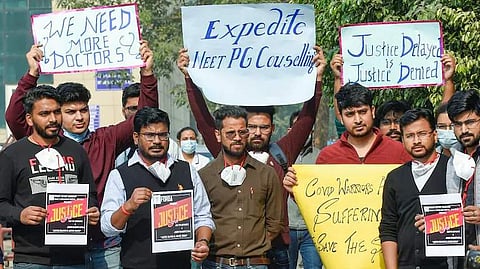 WE NEED
MORE
DOCTORS
Expedite
NEET PG Couselling
Justice Delayed
is
Justice Denied
COVID WARRIORS
SUFFERING
SAVE THE
JUSTICE
JUSTICE
JUSTICE